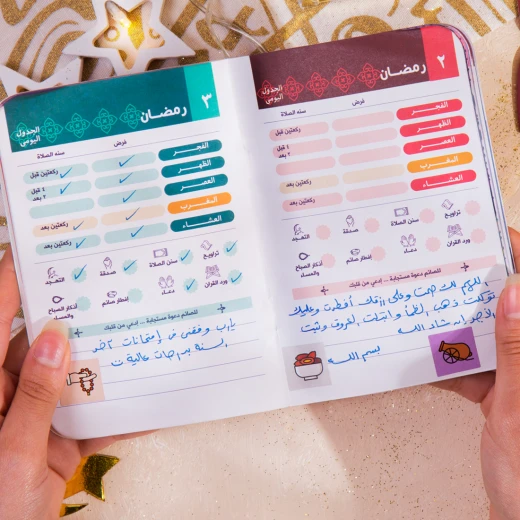 ٢ رمضان
الجدول اليومي
فرض
سنه الصلاة
الفجر
ركعتين قبل
الظهر
٤ قبل
٢ بعد
العصر
المغرب
ركعتين بعد
العشاء
ركعتين بعد
تراويح
سنن الصلاة
صدقة
التهجد
ورد القران
دعاء
إفطار صائم
أذكار الصباح
والمساء
للصائم دعوة مستجابة ... ادعي من قلبك
اللهم لك صمت وعلى رزقك أفطرت وعليك
توكلت ذهب الظمأ وابتلت العروق وثبت
الأجر إن شاء الله
بسم الله
٣ رمضان
الجدول اليومي
فرض
سنه الصلاة
الفجر
ركعتين قبل
الظهر
٤ قبل
٢ بعد
العصر
المغرب
ركعتين بعد
العشاء
ركعتين بعد
تراويح
سنن الصلاة
صدقة
التهجد
ورد القران
دعاء
إفطار صائم
أذكار الصباح
والمساء
للصائم دعوة مستجابة ... ادعي من قلبك
يارب وفقني في إمتحانات آخر
السنة بدرجات عالية